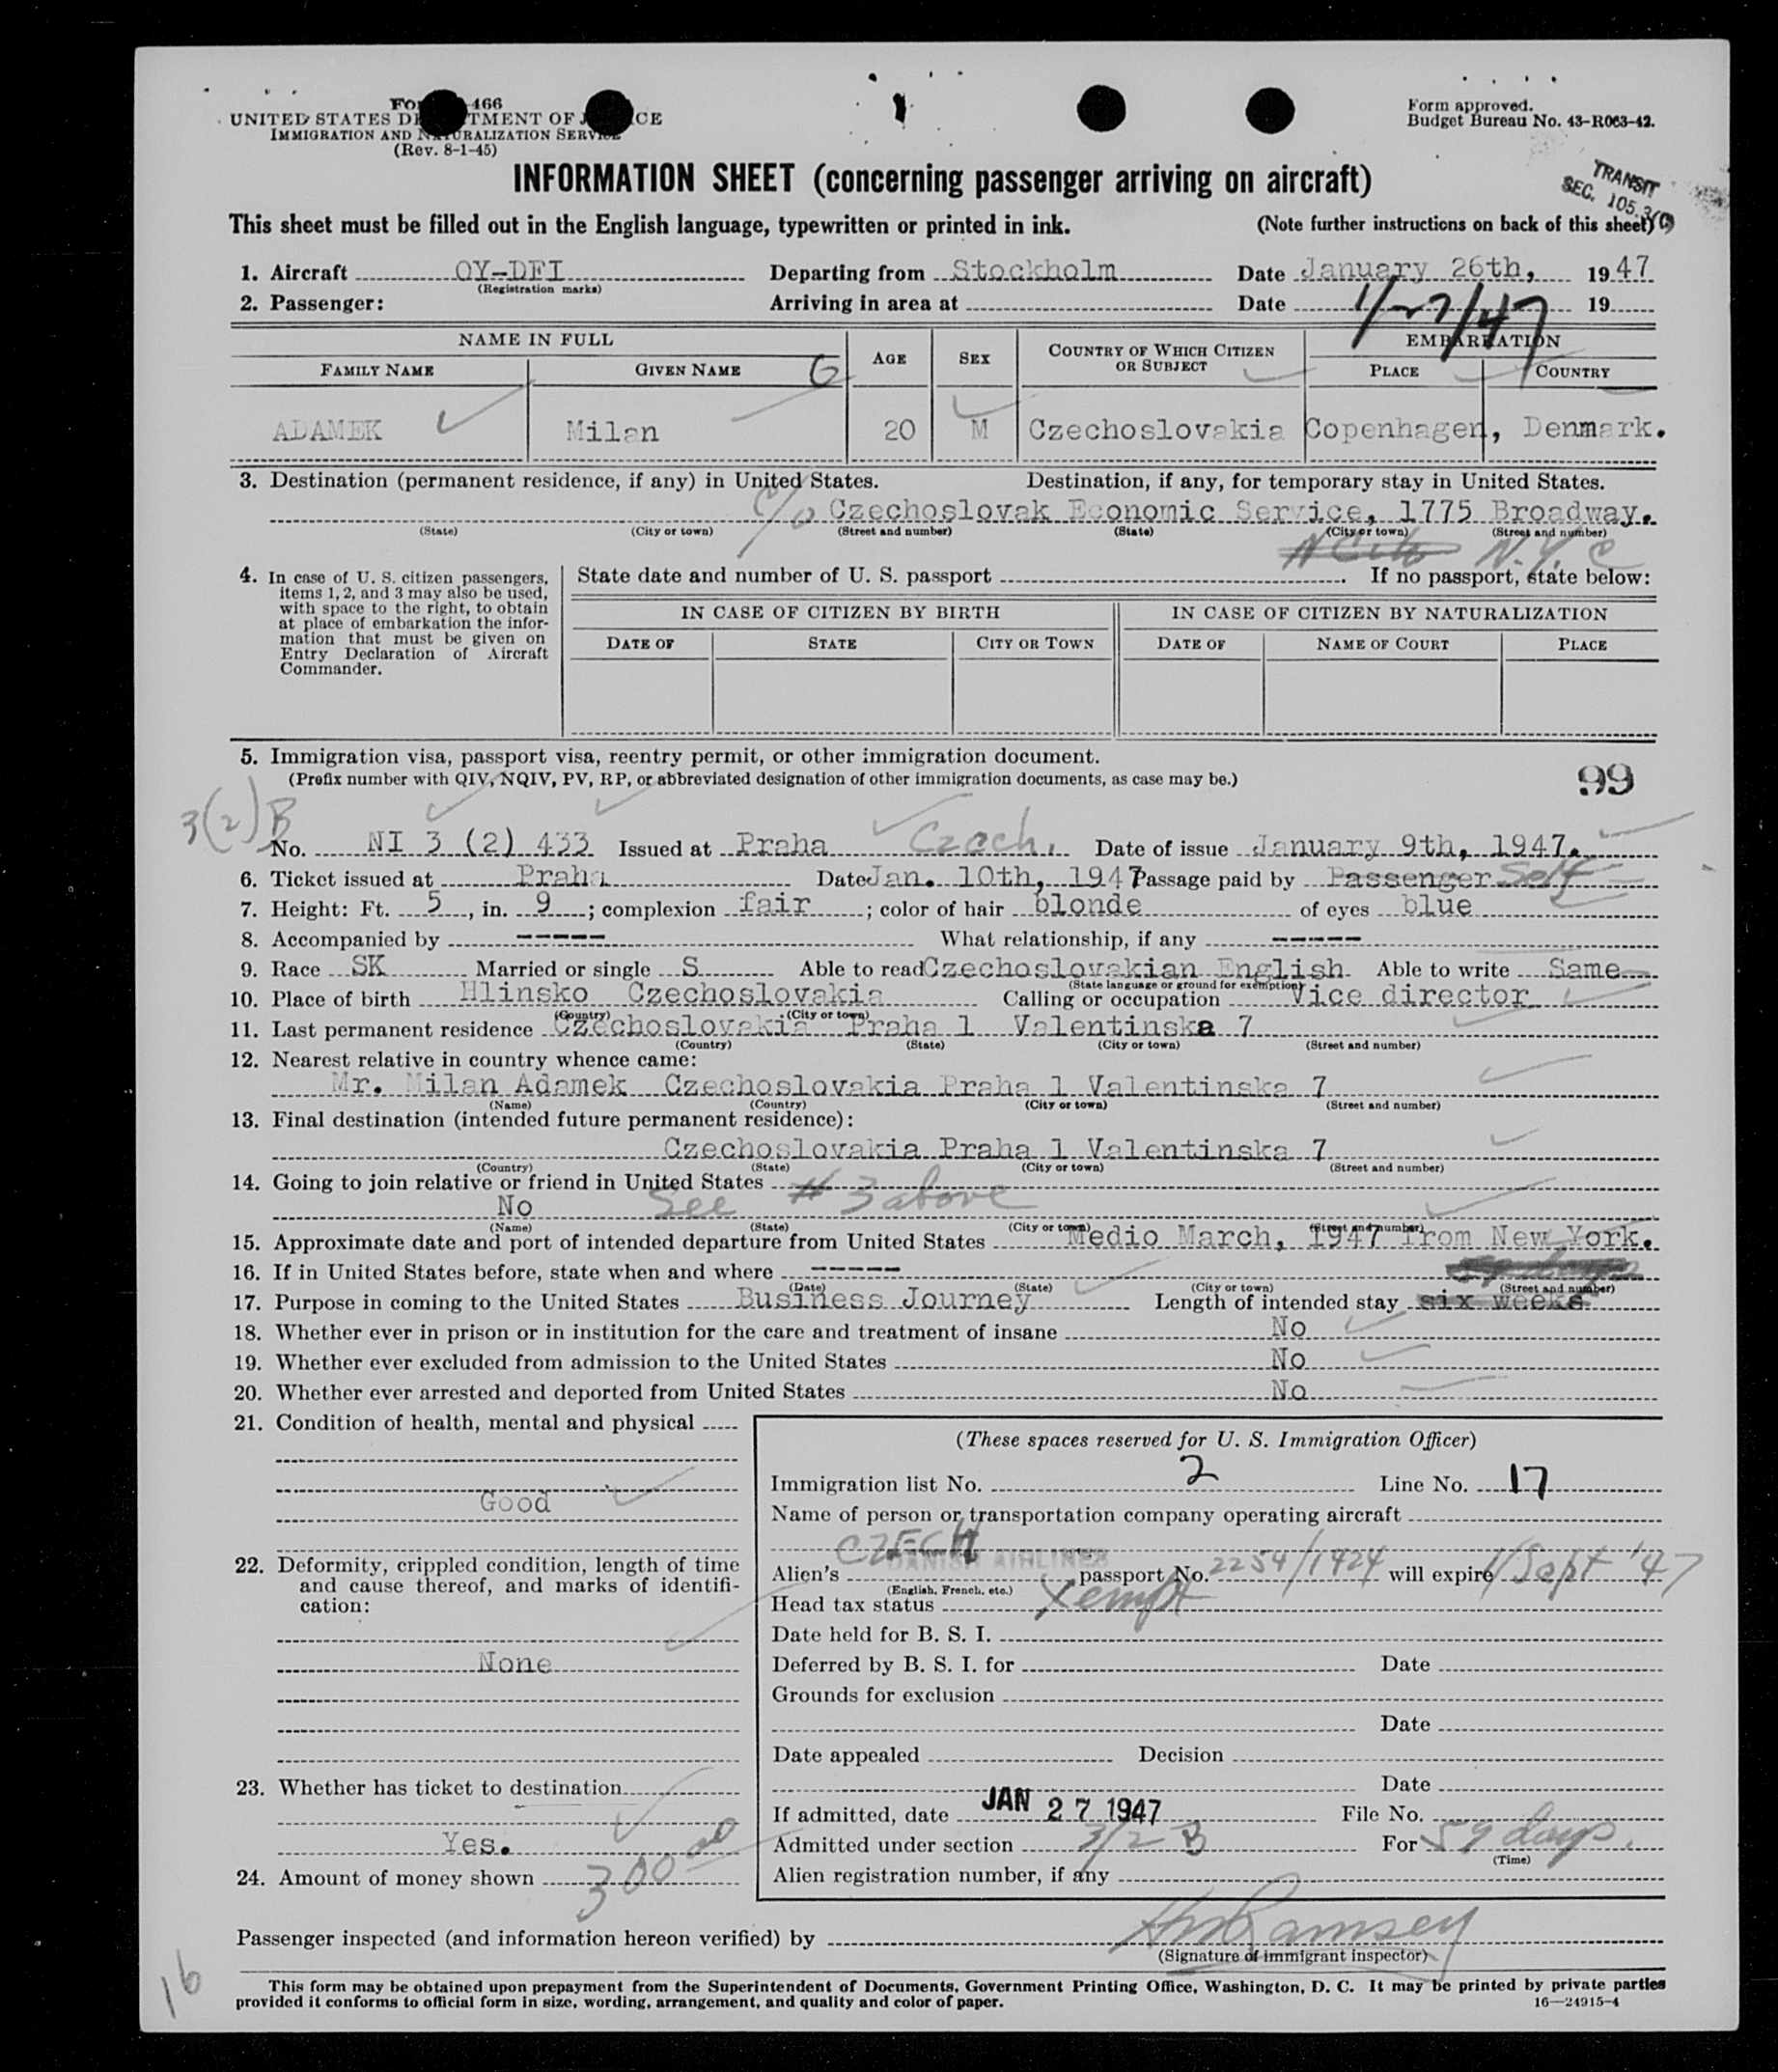 466
UNITED STATES
IMMIGRATION AND NATURALIZATION SERVICE
(Rev. 8-1-45)
Form approved.
Budget Bureau No. 43-R063-42.
INFORMATION SHEET (concerning passenger arriving on aircraft)
TRANSIT
SEC. 105.3(C)
This sheet must be filled out in the English language, typewritten or printed in ink. (Note further instructions on back of this sheet)
1. Aircraft OY-DFI Departing from Stockholm Date January 26th, 1947
(Registration marks)
2. Passenger: Arriving in area at Date 1/27/47 19
NAME IN FULL AGE SEX COUNTRY OF WHICH CITIZEN OR SUBJECT EMBARKATION
FAMILY NAME GIVEN NAME G PLACE COUNTRY
ADAMEK Milan 20 M Czechoslovakia Copenhagen, Denmark.
3. Destination (permanent residence, if any) in United States. Destination, if any, for temporary stay in United States.
c/o Czechoslovak Economic Service, 1775 Broadway.
(State) (City or town) (Street and number) (State) (City or town) (Street and number)
N.Y.C
4. In case of U. S. citizen passengers, items 1, 2, and 3 may also be used, with space to the right, to obtain at place of embarkation the information that must be given on Entry Declaration of Aircraft Commander.
State date and number of U. S. passport . If no passport, state below:
IN CASE OF CITIZEN BY BIRTH IN CASE OF CITIZEN BY NATURALIZATION
DATE OF STATE CITY OR TOWN DATE OF NAME OF COURT PLACE
5. Immigration visa, passport visa, reentry permit, or other immigration document.
(Prefix number with QIV, NQIV, PV, RP, or abbreviated designation of other immigration documents, as case may be.)
99
3(2)B
No. NI 3 (2) 433 Issued at Praha Czech. Date of issue January 9th, 1947.
6. Ticket issued at Praha Date Jan. 10th, 1947 Passage paid by Passenger Self
7. Height: Ft. 5, in. 9; complexion fair; color of hair blonde of eyes blue
8. Accompanied by ----- What relationship, if any -----
9. Race SK Married or single S Able to read Czechoslovakian English Able to write Same
(State language or ground for exemption)
10. Place of birth Hlinsko Czechoslovakia Calling or occupation Vice director
(Country) (City or town)
11. Last permanent residence Czechoslovakia Praha 1 Valentinska 7
(Country) (State) (City or town) (Street and number)
12. Nearest relative in country whence came:
Mr. Milan Adamek Czechoslovakia Praha 1 Valentinska 7
(Name) (Country) (City or town) (Street and number)
13. Final destination (intended future permanent residence):
Czechoslovakia Praha 1 Valentinska 7
(Country) (State) (City or town) (Street and number)
14. Going to join relative or friend in United States
No See # 3 above
(Name) (State) (City or town) (Street and number)
15. Approximate date and port of intended departure from United States Medio March, 1947 from New York.
16. If in United States before, state when and where -----
(Date) (State) (City or town) (Street and number)
17. Purpose in coming to the United States Business Journey Length of intended stay six weeks
18. Whether ever in prison or in institution for the care and treatment of insane No
19. Whether ever excluded from admission to the United States No
20. Whether ever arrested and deported from United States No
21. Condition of health, mental and physical
Good
22. Deformity, crippled condition, length of time and cause thereof, and marks of identification:
None
23. Whether has ticket to destination
Yes.
24. Amount of money shown 300 00
(These spaces reserved for U. S. Immigration Officer)
Immigration list No. 2 Line No. 17
Name of person or transportation company operating aircraft
DANISH AIRLINES
Alien's CZECH passport No. 2254/1924 will expire 1/Sept '47
(English, French, etc.)
Head tax status Xempt
Date held for B. S. I.
Deferred by B. S. I. for Date
Grounds for exclusion
Date
Date appealed Decision
Date
If admitted, date JAN 27 1947 File No.
Admitted under section 3/2 B For 59 days.
(Time)
Alien registration number, if any
Passenger inspected (and information hereon verified) by Ramsey
(Signature of immigrant inspector)
16
This form may be obtained upon prepayment from the Superintendent of Documents, Government Printing Office, Washington, D. C. It may be printed by private parties
provided it conforms to official form in size, wording, arrangement, and quality and color of paper. 16—24915-4